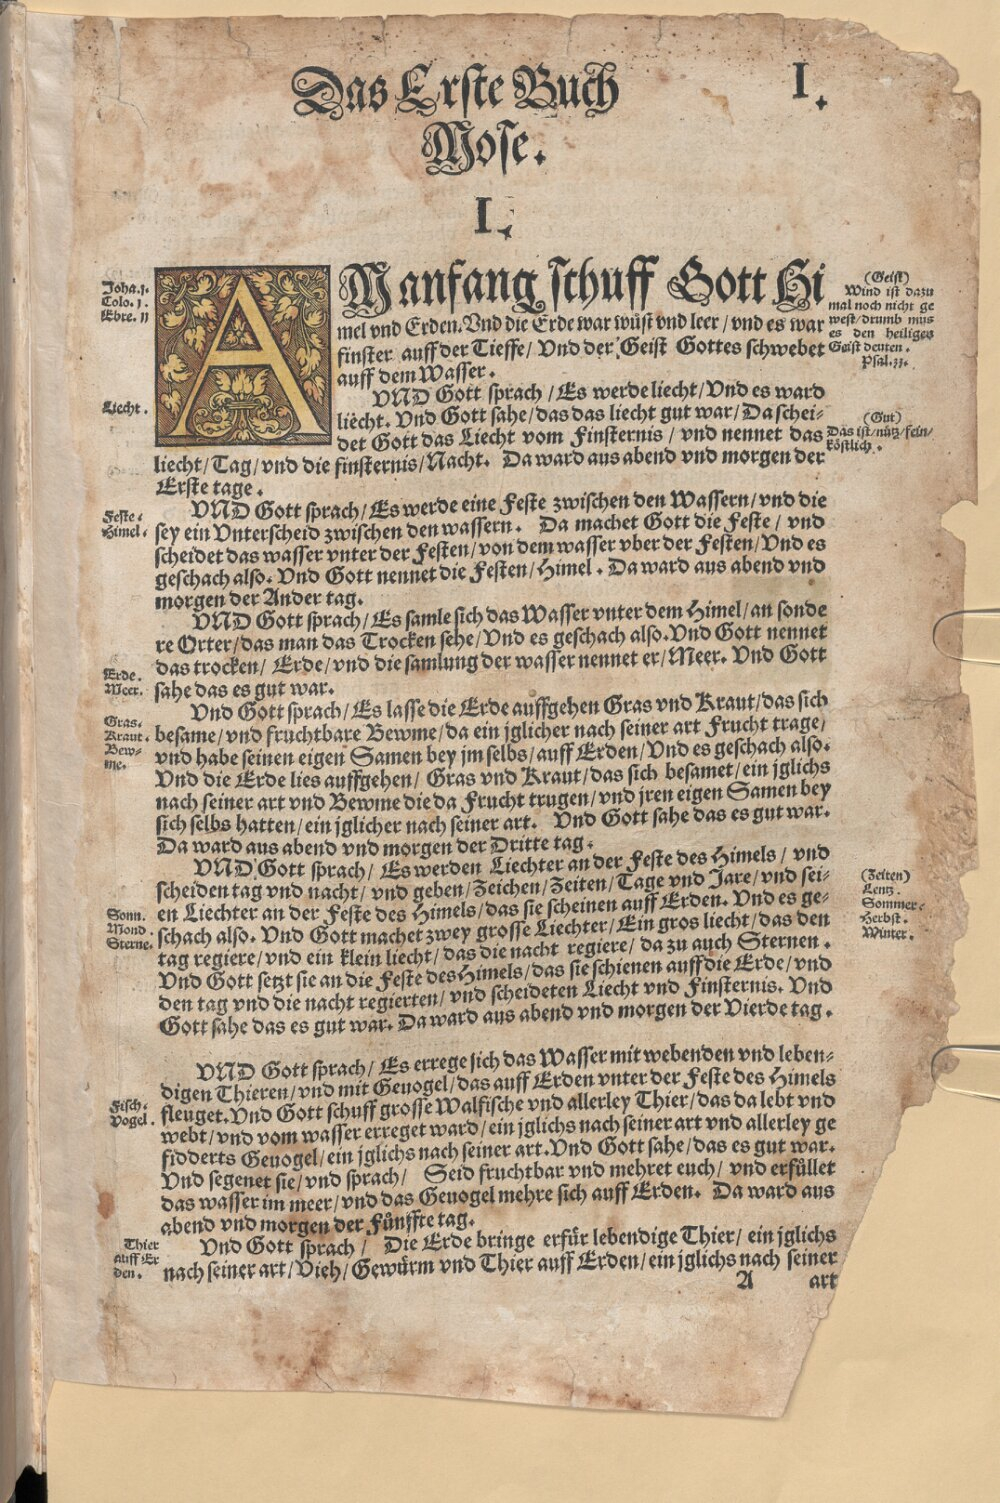 Das Erste Buch
I.
Mose.
I.
AM anfang schuff Gott Hi
mel vnd Erden. Vnd die Erde war wüst vnd leer / vnd es war
finster auff der Tieffe / Vnd der Geist Gottes schwebet
auff dem Wasser.
VND Gott sprach / Es werde liecht / Vnd es ward
liecht. Vnd Gott sahe / das das liecht gut war / Da schei-
det Gott das Liecht vom Finsternis / vnd nennet das
liecht / Tag / vnd die finsternis / Nacht. Da ward aus abend vnd morgen der
Erste tage.
VND Gott sprach / Es werde eine Feste zwischen den Wassern / vnd die
sey ein Vnterscheid zwischen den wassern. Da machet Gott die Feste / vnd
scheidet das wasser vnter der Festen / von dem wasser vber der Festen / Vnd es
geschach also. Vnd Gott nennet die Festen / Himel. Da ward aus abend vnd
morgen der Ander tag.
VND Gott sprach / Es samle sich das Wasser vnter dem Himel / an sonde
re Orter / das man das Trocken sehe / Vnd es geschach also. Vnd Gott nennet
das trocken / Erde / vnd die samlung der wasser nennet er / Meer. Vnd Gott
sahe das es gut war.
Vnd Gott sprach / Es lasse die Erde auffgehen Gras vnd Kraut / das sich
besame / vnd fruchtbare Bewme / da ein jglicher nach seiner art Frucht trage /
vnd habe seinen eigen Samen bey jm selbs / auff Erden / Vnd es geschach also.
Vnd die Erde lies auffgehen / Gras vnd Kraut / das sich besamet / ein jglichs
nach seiner art vnd Bewme die da Frucht trugen / vnd jren eigen Samen bey
sich selbs hatten / ein jglicher nach seiner art. Vnd Gott sahe das es gut war.
Da ward aus abend vnd morgen der Dritte tag.
VND Gott sprach / Es werden Liechter an der Feste des Himels / vnd
scheiden tag vnd nacht / vnd geben / Zeichen / Zeiten / Tage vnd Jare / vnd sei-
en Liechter an der Feste des Himels / das sie scheinen auff Erden. Vnd es ge-
schach also. Vnd Gott machet zwey grosse Liechter / Ein gros liecht / das den
tag regiere / vnd ein klein liecht / das die nacht regiere / da zu auch Sternen.
Vnd Gott setzt sie an die Feste des Himels / das sie schienen auff die Erde / vnd
den tag vnd die nacht regierten / vnd scheideten Liecht vnd Finsternis. Vnd
Gott sahe das es gut war. Da ward aus abend vnd morgen der Vierde tag.
VND Gott sprach / Es errege sich das Wasser mit webenden vnd leben-
digen Thieren / vnd mit Geuogel / das auff Erden vnter der Feste des Himels
fleuget. Vnd Gott schuff grosse Walfische vnd allerley Thier / das da lebt vnd
webt / vnd vom wasser erreget ward / ein jglichs nach seiner art vnd allerley ge
fidderts Geuogel / ein jglichs nach seiner art. Vnd Gott sahe / das es gut war.
Vnd segenet sie / vnd sprach / Seid fruchtbar vnd mehret euch / vnd erfüllet
das wasser im meer / vnd das Geuogel mehre sich auff Erden. Da ward aus
abend vnd morgen der Fünffte tag.
Vnd Gott sprach / Die Erde bringe erfür lebendige Thier / ein jglichs
nach seiner art / Vieh / Gewürm vnd Thier auff Erden / ein jglichs nach seiner
A art
Joha. j.
Colo. j.
Ebre. jj
Liecht.
Feste.
Himel.
Erde.
Meer.
Gras.
Kraut.
Bew-
me.
Sonn.
Mond.
Sterne.
Fisch.
Vogel.
Thier
auff Er
den.
(Geist)
Wind ist dazu
mal noch nicht ge
west / drumb mus
es den heiligen
Geist deuten.
Psal. 33.
(Gut)
Das ist / nütz / fein /
köstlich.
(Zeiten)
Lentz.
Sommer.
Herbst.
Winter.